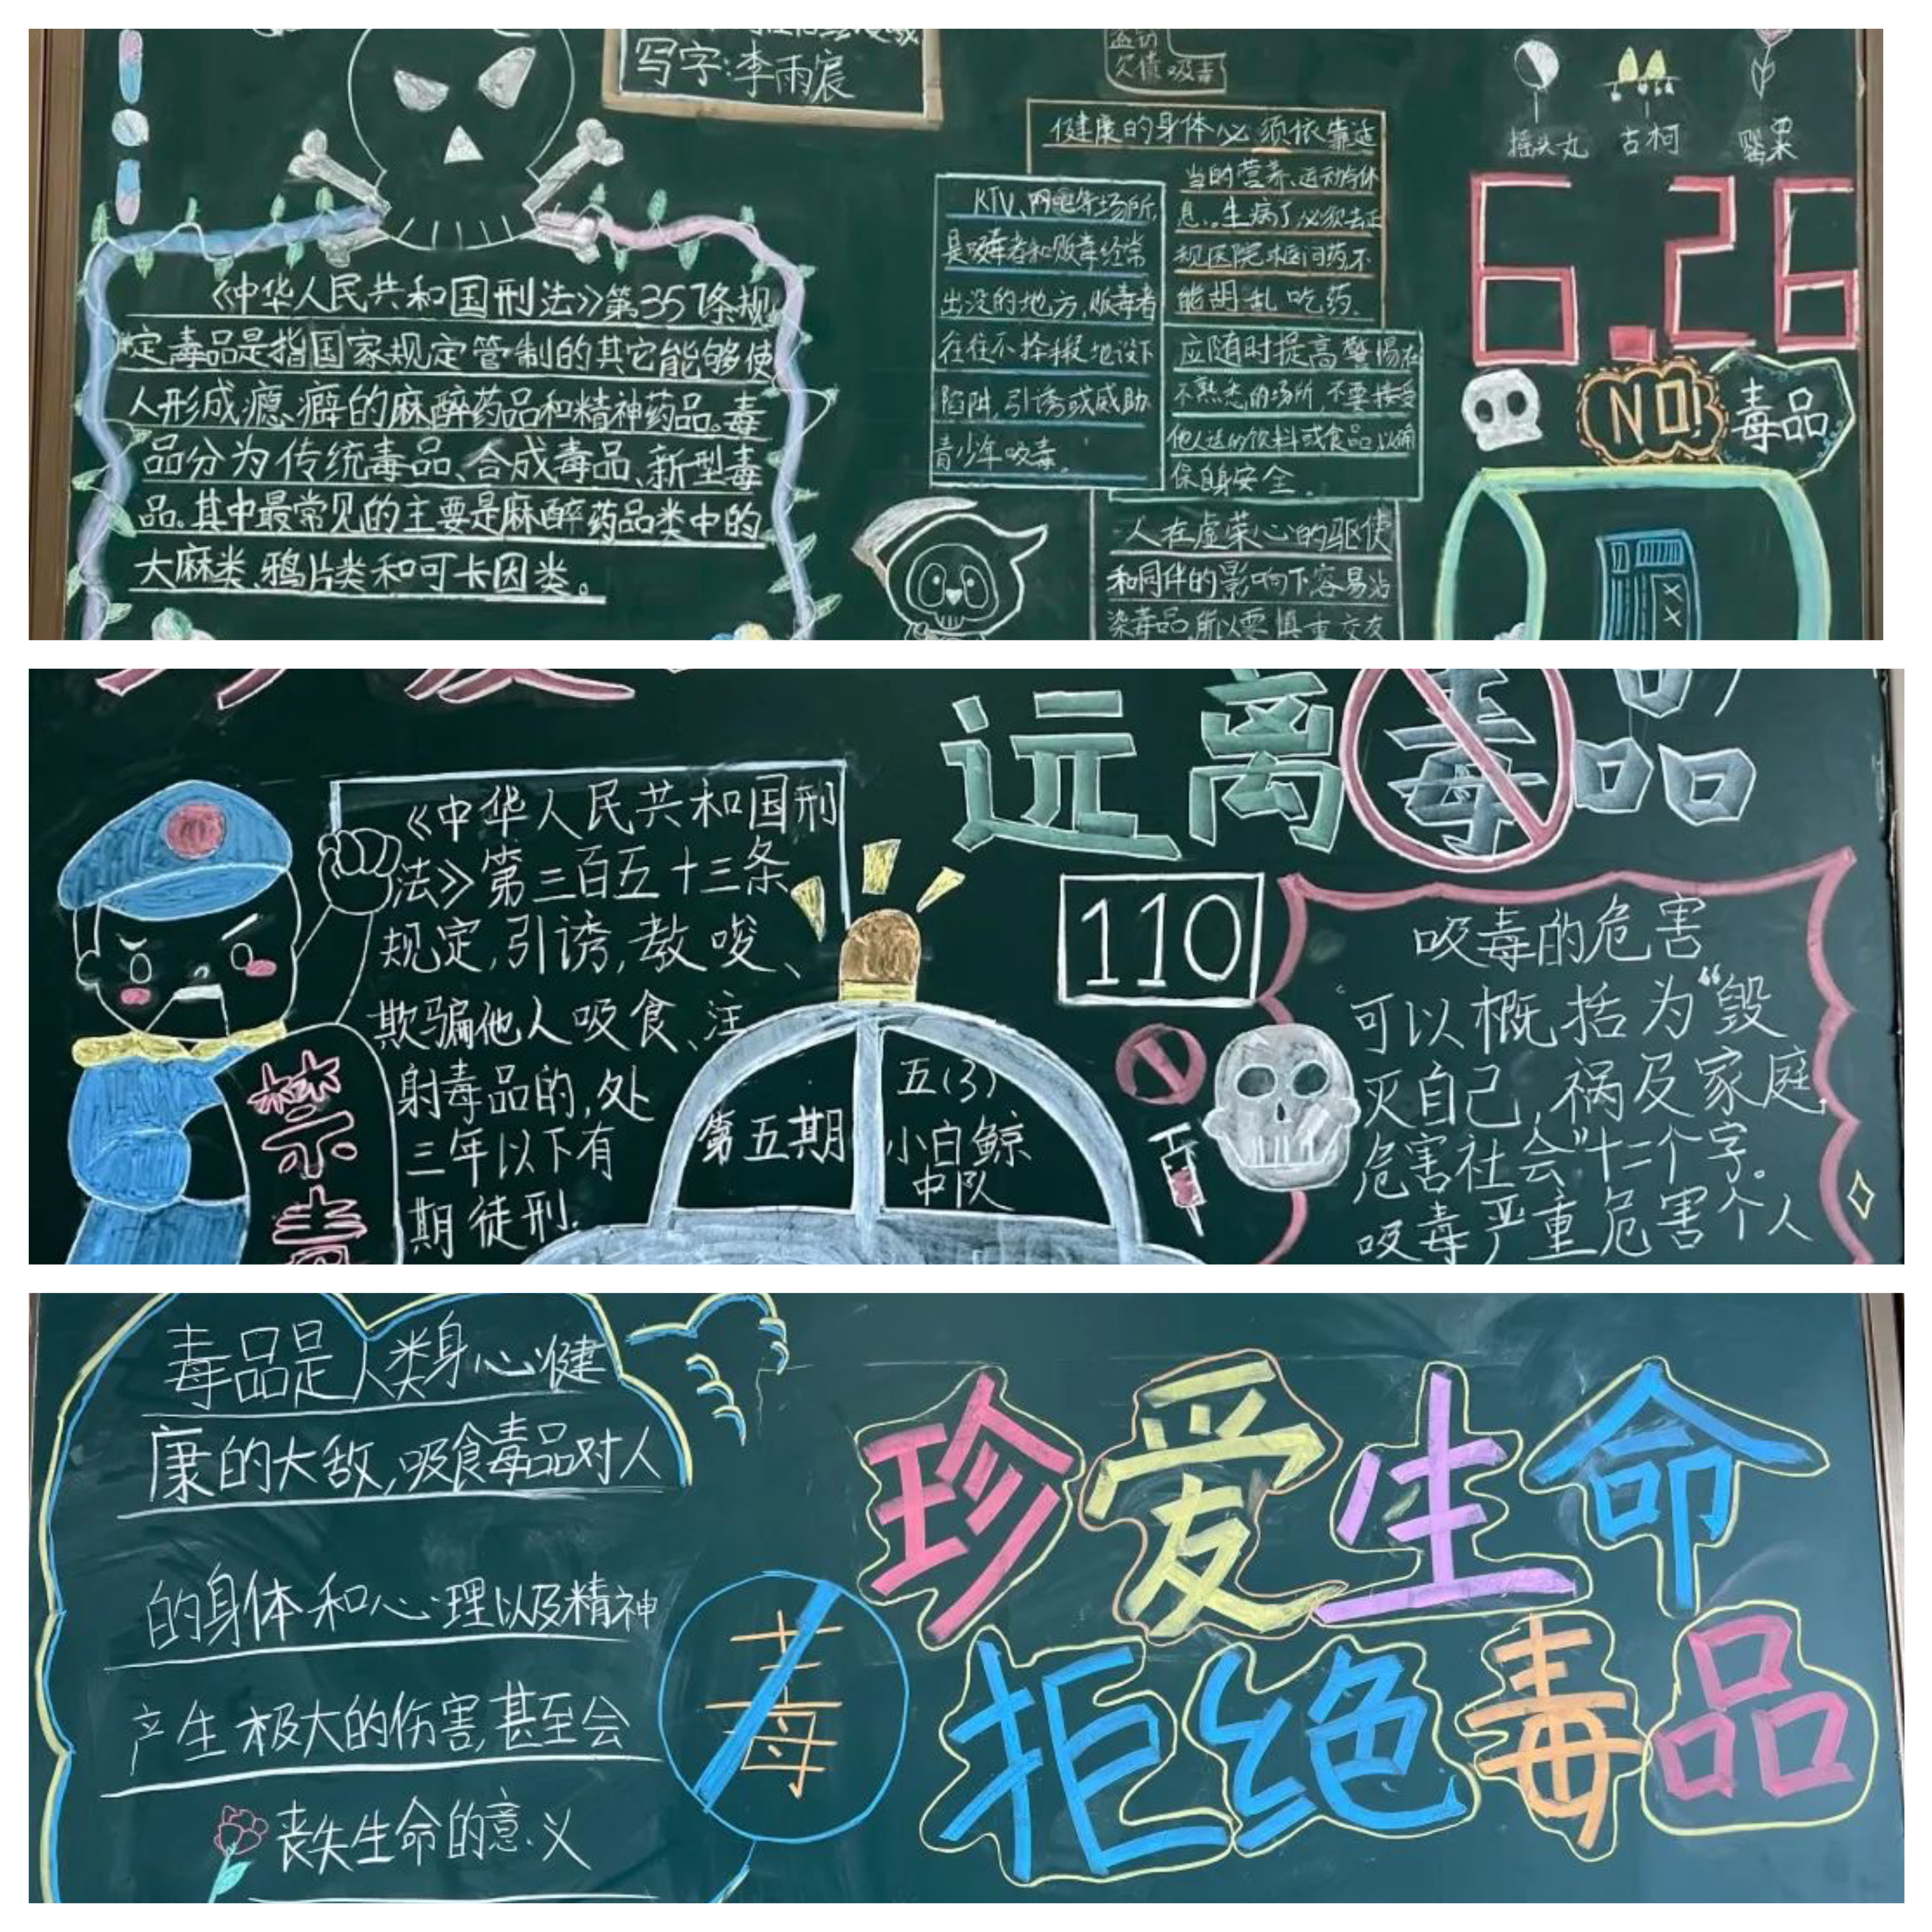 写字:李雨宸
欠债 吸毒
摇头丸 古柯 罂粟
6.26
NO!
毒品
《中华人民共和国刑法》第357条规
定毒品是指国家规定管制的其它能够使
人形成瘾癖的麻醉药品和精神药品。毒
品分为传统毒品、合成毒品、新型毒
品。其中最常见的主要是麻醉药品类中的
大麻类、鸦片类和可卡因类。
KTV、网吧等场所,
是吸毒者和贩毒经常
出没的地方,贩毒者
往往不择手段地设下
陷阱,引诱或威胁
青少年吸毒。
健康的身体必须依靠适
当的营养、运动与休
息、生病了必须去正
规医院 问药,不
能胡乱吃药.
应随时提高警惕在
不熟悉的场所,不要接受
他人送的饮料或食品,以确
保自身安全.
人在虚荣心的驱使
和同伴的影响下容易沾
染毒品,所以要慎重交友
远离毒品
《中华人民共和国刑
法》第三百五十三条
规定,引诱,教唆、
欺骗他人吸食、注
射毒品的,处
三年以下有
期徒刑.
禁毒
第五期
五(3)
小白鲸
中队
110
吸毒的危害
可以概括为“毁
灭自己,祸及家庭,
危害社会”十二个字。
吸毒严重危害个人
毒品是人类身心健
康的大敌,吸食毒品对人
的身体和心理以及精神
产生极大的伤害,甚至会
丧失生命的意义
毒
珍爱生命
拒绝毒品